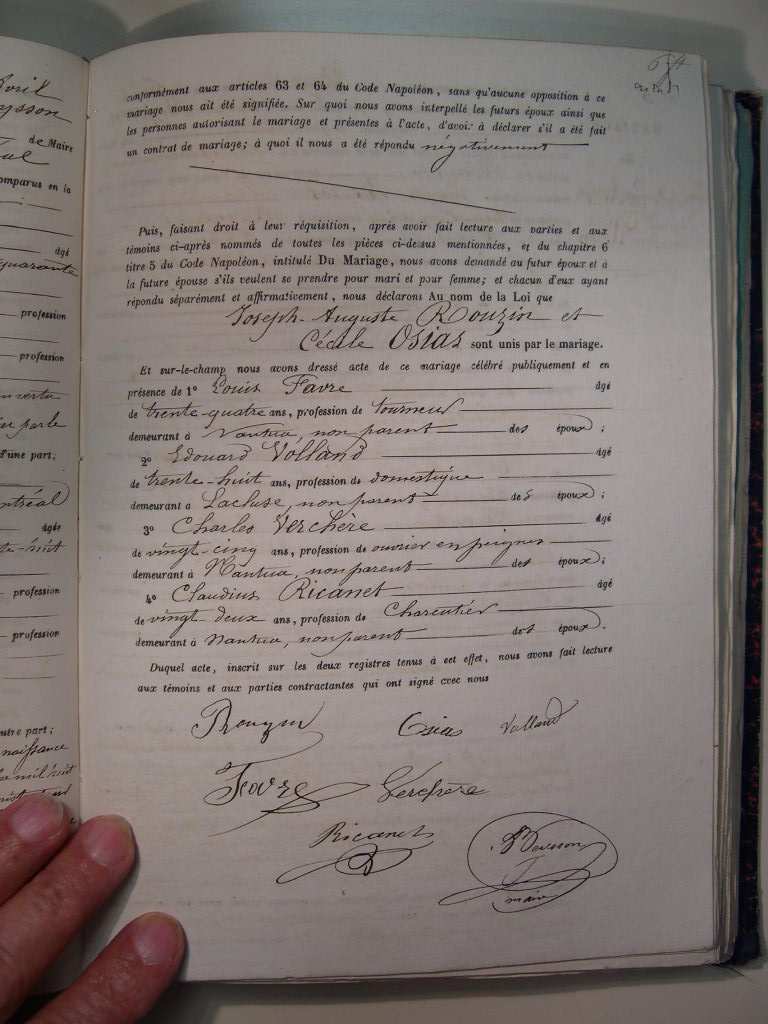 avril
de Maire
comparus en la
âgé
quarante
profession
profession
d'une part,
Montréal
âgée
profession
profession
autre part;
naissance
mil huit
conformément aux articles 63 et 64 du Code Napoléon, sans qu'aucune opposition à ce
mariage nous ait été signifiée. Sur quoi nous avons interpellé les futurs époux ainsi que
les personnes autorisant le mariage et présentes à l'acte, d'avoir à déclarer s'il a été fait
un contrat de mariage; à quoi il nous a été répondu négativement
Puis, faisant droit à leur réquisition, après avoir fait lecture aux parties et aux
témoins ci-après nommés de toutes les pièces ci-dessus mentionnées, et du chapitre 6
titre 5 du Code Napoléon, intitulé Du Mariage, nous avons demandé au futur époux et à
la future épouse s'ils veulent se prendre pour mari et pour femme; et chacun d'eux ayant
répondu séparément et affirmativement, nous déclarons Au nom de la Loi que
Joseph-Auguste Rouzin et
Cécile Osias sont unis par le mariage.
Et sur-le-champ nous avons dressé acte de ce mariage célébré publiquement et en
présence de 1° Louis Favre âgé
de trente-quatre ans, profession de tourneur
demeurant à Nantua, non parent des époux;
2° Edouard Volland âgé
de trente-huit ans, profession de domestique
demeurant à Lacluse, non parent des époux;
3° Charles Verchère âgé
de vingt-cinq ans, profession de ouvrier en peignes
demeurant à Nantua, non parent des époux;
4° Claudius Ricanet âgé
de vingt-deux ans, profession de Charcutier
demeurant à Nantua, non parent des époux.
Duquel acte, inscrit sur les deux registres tenus à cet effet, nous avons fait lecture
aux témoins et aux parties contractantes qui ont signé avec nous
Rouzin Osias Volland
Favre Verchère
Ricanet
maire